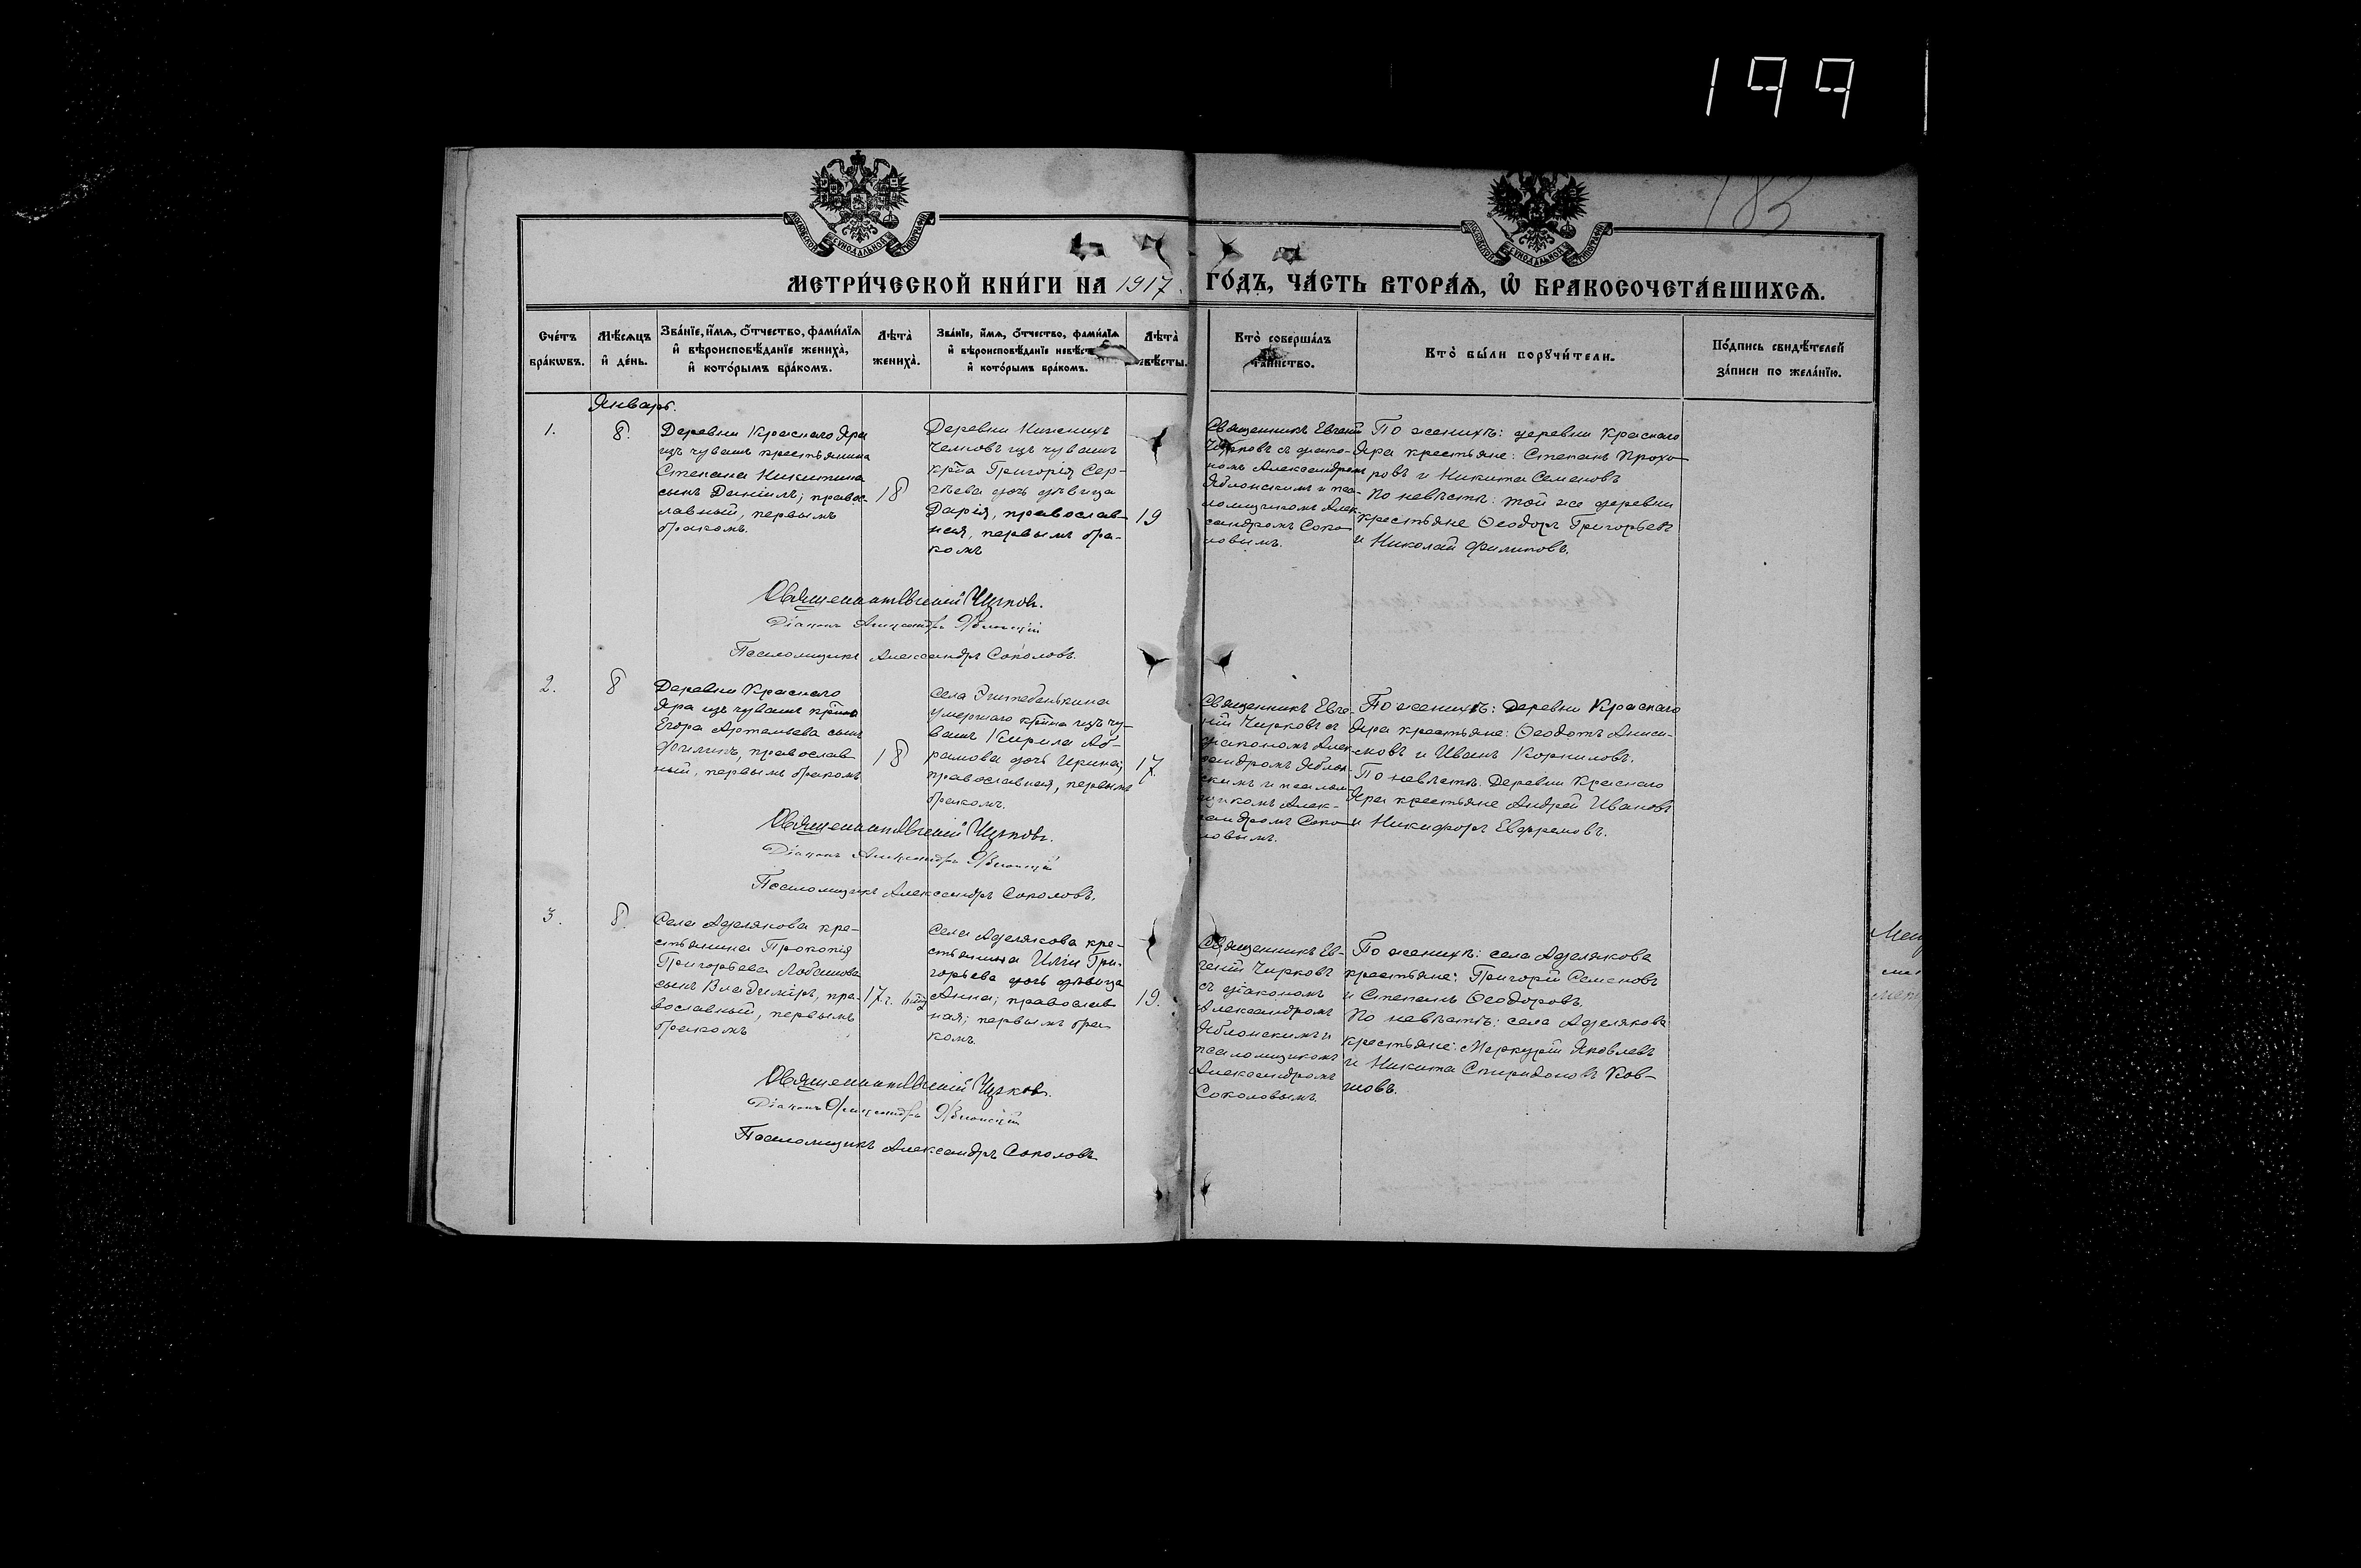 199
183
МОСКОВСКОЙ СѴНОДАЛЬНОЙ ТИПОГРАФІИ
МОСКОВСКОЙ СѴНОДАЛЬНОЙ ТИПОГРАФІИ
МЕТРИ́ЧЕСКОЙ КНИ́ГИ НА 1917 ГО́ДЪ, ЧА́СТЬ ВТОРА́Ѧ, Ѽ БРАКОСОЧЕТА́ВШИХСѦ.
Сче́тъ бра́кѡвъ.
Мѣ́сѧцъ и҆ де́нь.
Зва́нїе, и҆́мѧ, ѻ҆́тчество, фами́лїѧ
и҆ вѣроисповѣ́данїе жениха̀,
и҆ кото́рымъ бра́комъ.
Лѣта̀ жениха̀.
Зва́нїе, и҆́мѧ, ѻ҆́тчество, фами́лїѧ
и҆ вѣроисповѣ́данїе невѣ́ст
и҆ кото́рымъ бра́комъ.
Лѣта̀
вѣ́сты.
Кто̀ соверша́лъ
та́инство.
Кто̀ бы́ли порꙋчи́тели.
По́дпись свидѣ́телей
за́писи по жела́нїю.
Январь.
1.
8.
Деревни Краснаго Яра
изъ чувашъ крестьянина
Степана Никитина
сынъ Даніилъ; правос-
лавный, первымъ
бракомъ.
18
Деревни Нижнихъ
изъ чувашъ
кр̃на Григорія Сер-
гѣева дочь дѣвица
Дарія, православ-
ная, первымъ бра-
комъ
19
Священникъ Евгеній
Чирковъ съ діако-
номъ Александромъ
Яблонскимъ и пса-
ломщикомъ Алек-
сандромъ Соко-
ловымъ.
По женихѣ: деревни Краснаго
Яра крестьяне: Степанъ Прохо-
ровъ и Никита Семеновъ
По невѣстѣ: той же деревни
крестьяне Ѳеодоръ Григорьевъ
и Николай Филиповъ.
Священникъ Евгеній Чирковъ.
Діаконъ Александръ Яблонскій
Псаломщикъ Александръ Соколовъ.
2.
8
Деревни Краснаго
Яра изъ чувашъ кр̃на
Егора Артемьева сынъ
Филипъ, православ
ный, первымъ бракомъ
18
Села
умершаго кр̃на изъ чу-
вашъ Кирила Аб-
рамова дочь Ирина;
православная, первымъ
бракомъ.
17.
Священникъ Евге-
ній Чирковъ съ
діакономъ Алек-
сандромъ Яблон-
скимъ и псалом-
щикомъ Алек-
сандромъ Соко-
ловымъ.
По женихѣ: Деревни Краснаго
Яра крестьяне: Ѳеодотъ Аниси-
мовъ и Иванъ Корниловъ.
По невѣстѣ: Деревни Краснаго
Яра крестьяне Андрей Ивановъ
и Никифоръ Евфремовъ.
Священникъ Евгеній Чирковъ.
Діаконъ Александръ Яблонскій
Псаломщикъ Александръ Соколовъ.
3.
8.
Села Аделякова кре-
стьянина Прокопія
Григорьева Лобанова
сынъ Владимиръ, пра-
вославный, первымъ
бракомъ
17 г.
Села Аделякова кре-
стьянина Иліи Гри-
горьева дочь дѣвица
Анна; православ
ная; первымъ бра
комъ.
19.
Священникъ Ев-
геній Чирковъ
съ діакономъ
Александромъ
Яблонскимъ и
псаломщикомъ
Александромъ
Соколовымъ.
По женихѣ: села Аделякова
крестьяне: Григорій Семеновъ
и Степанъ Ѳеодоровъ.
По невѣстѣ: села Аделякова
крестьяне: Меркурій Яковлевъ
и Никита Спиридоновъ
Священникъ Евгеній Чирковъ.
Діаконъ Александръ Яблонскій
Псаломщикъ Александръ Соколовъ